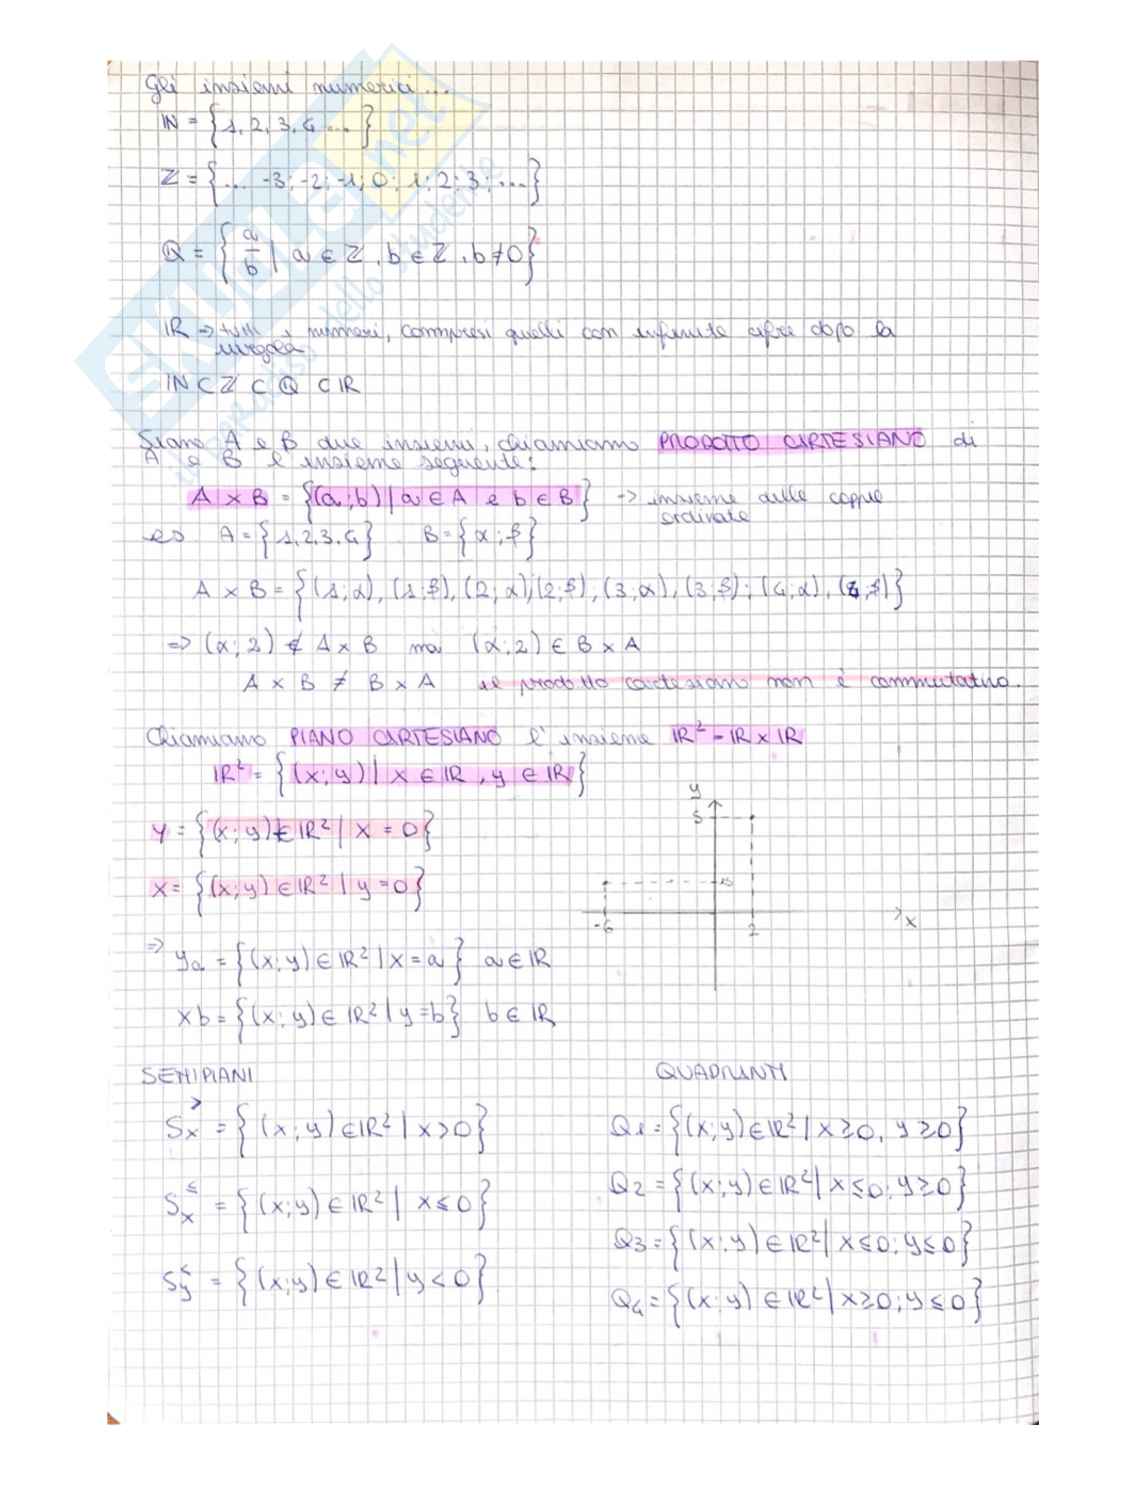 Gli insiemi numerici...
ℕ = {1, 2, 3, 4 ... }
ℤ = {... -3; -2; -1; 0; 1; 2; 3; ...}
ℚ = {a/b | a ∈ ℤ, b ∈ ℤ, b ≠ 0}
ℝ => tutti i numeri, compresi quelli con infinite cifre dopo la
virgola
ℕ ⊂ ℤ ⊂ ℚ ⊂ ℝ
Siano A e B due insiemi, chiamiamo PRODOTTO CARTESIANO di
A e B l'insieme seguente:
A × B = {(a;b) | a ∈ A e b ∈ B} -> insieme delle coppie
ordinate
es A = {1, 2, 3, 4} B = {α; β}
A × B = {(1;α), (1;β), (2;α); (2;β), (3;α), (3;β); (4;α), (4;β)}
=> (α; 2) ∉ A × B ma (α; 2) ∈ B × A
A × B ≠ B × A il prodotto cartesiano non è commutativo.
Chiamiamo PIANO CARTESIANO l'insieme ℝ² = ℝ × ℝ
ℝ² = {(x; y) | x ∈ ℝ, y ∈ ℝ}
y
5
y = {(x; y) ∈ ℝ² | x = 0}
x = {(x; y) ∈ ℝ² | y = 0}
-6 2 x
=> ya = {(x; y) ∈ ℝ² | x = a} a ∈ ℝ
xb = {(x; y) ∈ ℝ² | y = b} b ∈ ℝ
SEMIPIANI
Sx> = {(x; y) ∈ ℝ² | x > 0}
Sx≤ = {(x; y) ∈ ℝ² | x ≤ 0}
Sy< = {(x; y) ∈ ℝ² | y < 0}
QUADRANTI
Q1 = {(x; y) ∈ ℝ² | x ≥ 0, y ≥ 0}
Q2 = {(x; y) ∈ ℝ² | x ≤ 0; y ≥ 0}
Q3 = {(x; y) ∈ ℝ² | x ≤ 0; y ≤ 0}
Q4 = {(x; y) ∈ ℝ² | x ≥ 0; y ≤ 0}
SKUOLA.net
il paradiso dello studente